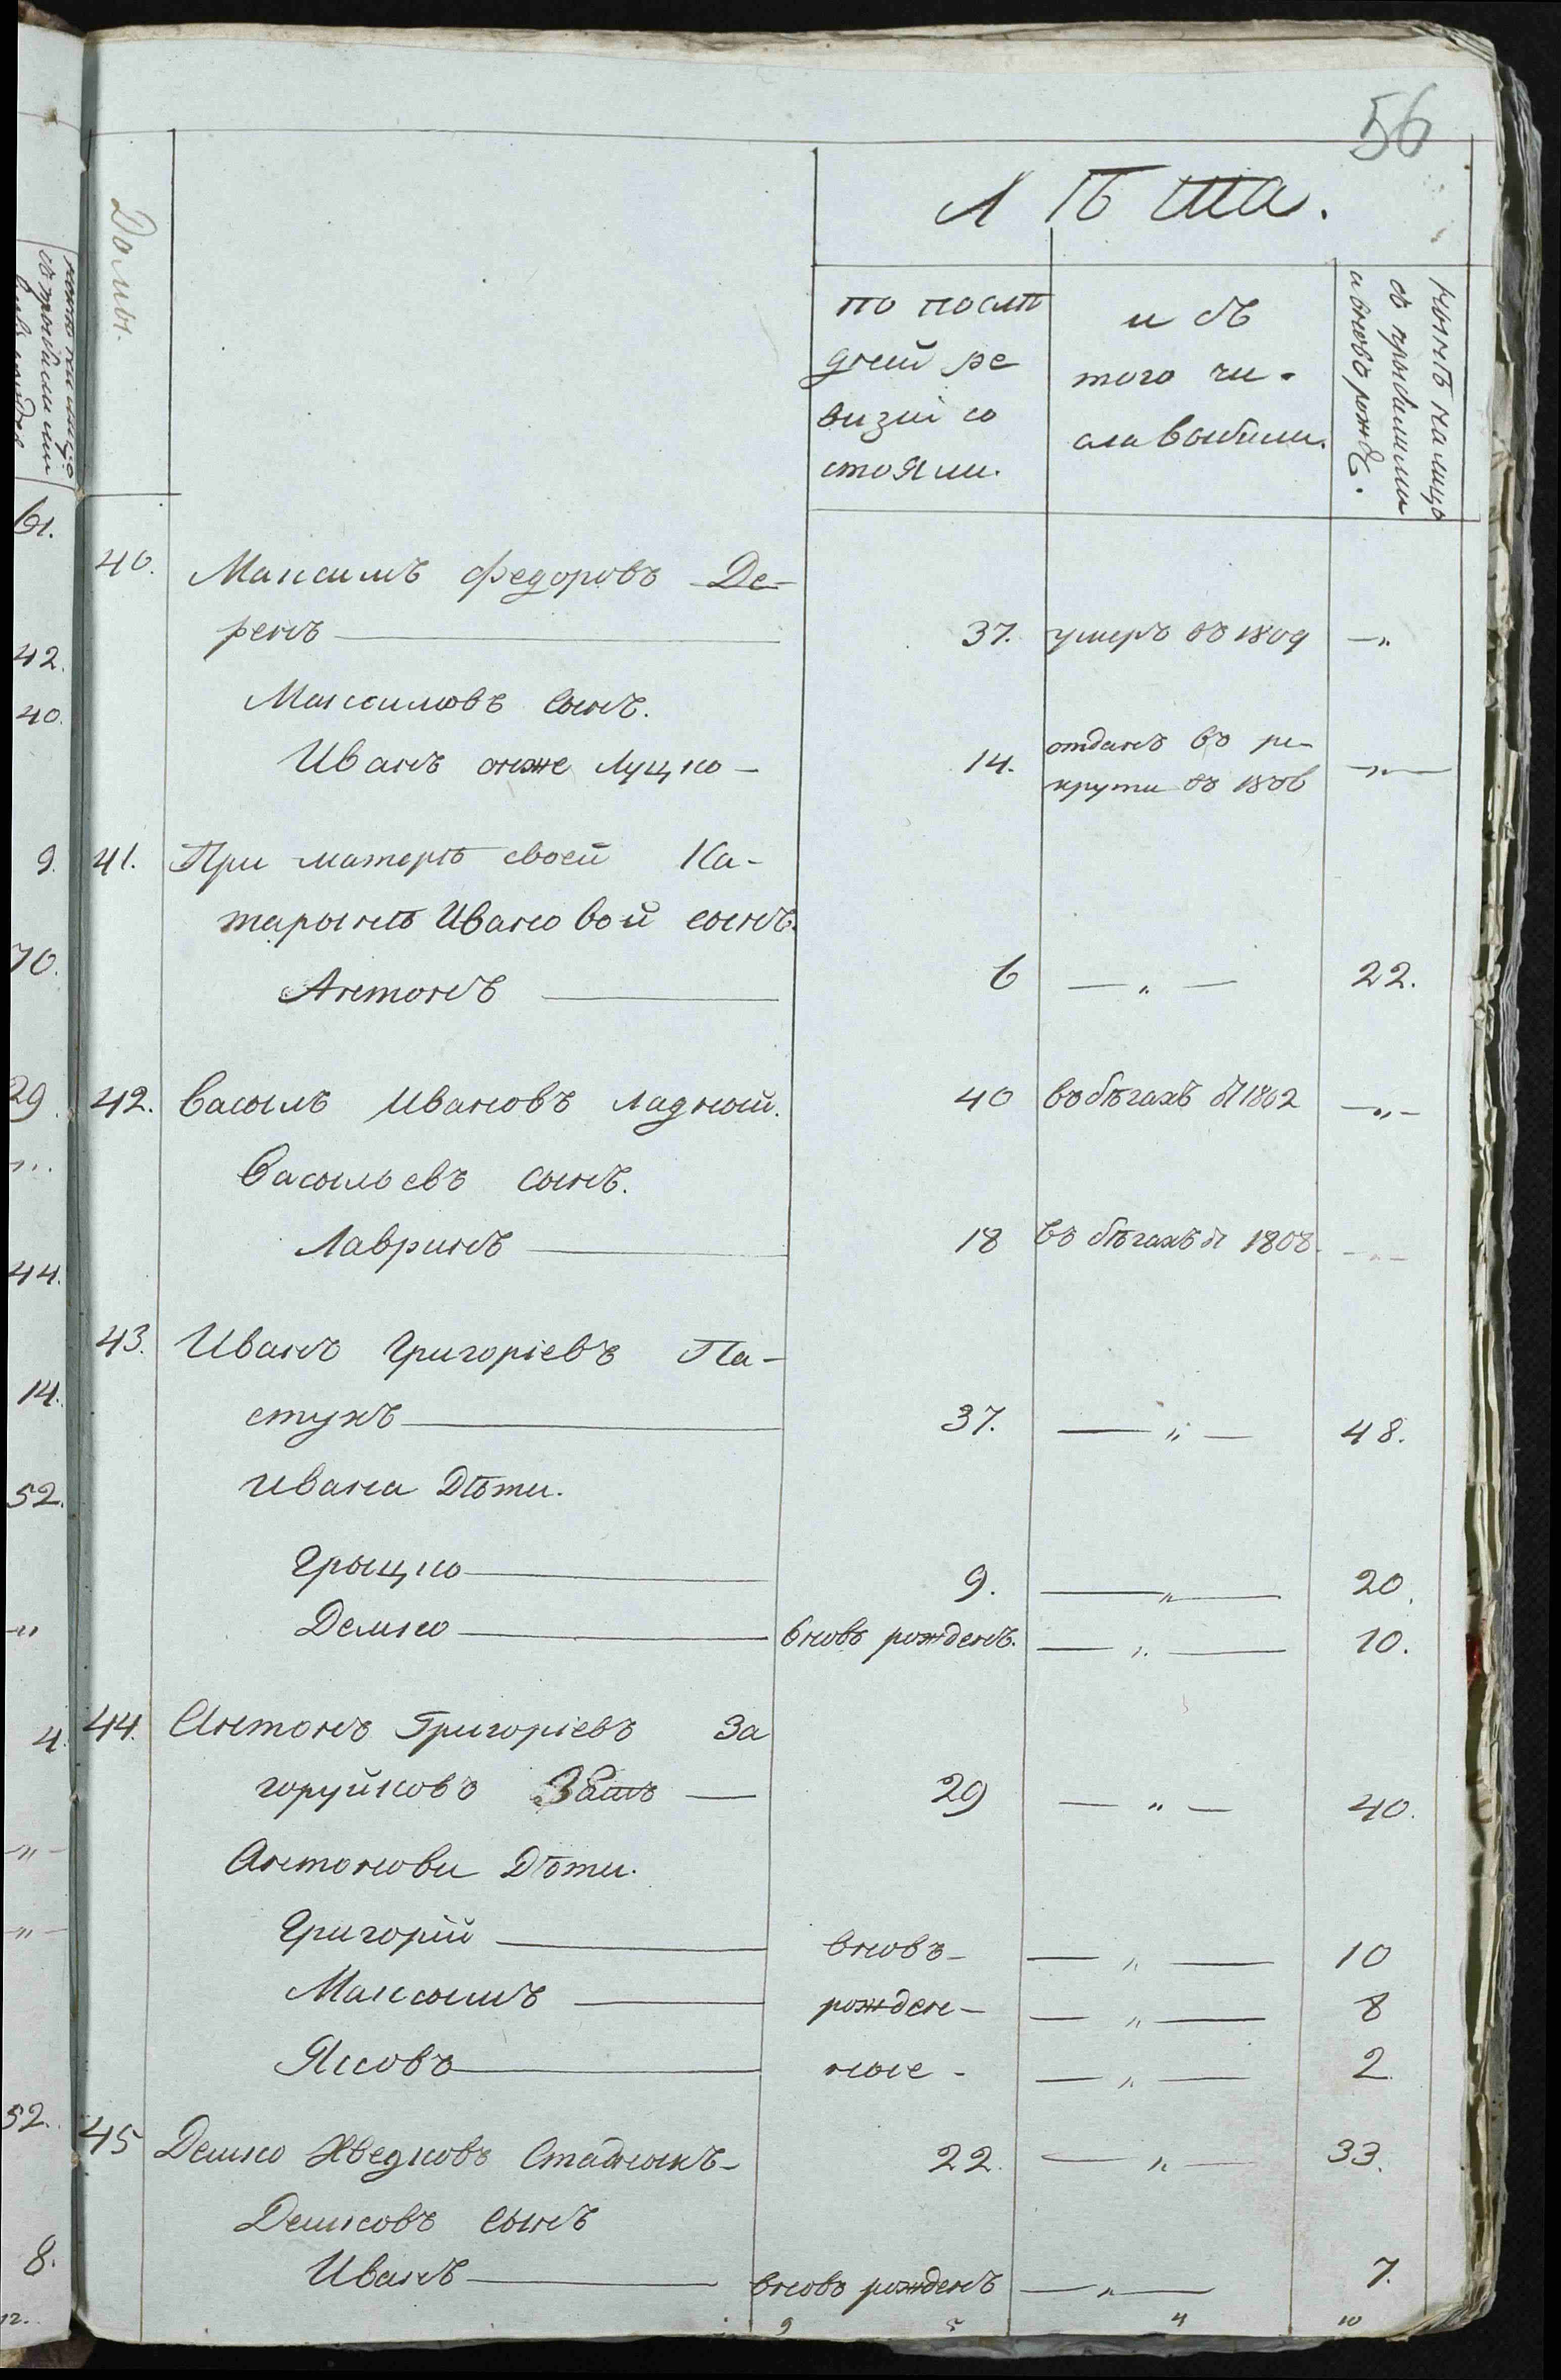 56
Лѣта.
Домы.
по послѣ
дней ре
визіи со
стояли.
изъ
того чи-
сла выбыли.
нынѣ налицо
съ прибылыми
и вново рожд.
40. Максимъ Федоровъ Де-
ренъ 37. умеръ въ 1809 —„
Максимовъ сынъ.
Иванъ онже Луцко — 14. отданъ въ ре-
крути въ 1806 —„—
41. При матерѣ своей Ка-
тарынѣ Ивановой сынъ.
Антонъ 6 —„— 22.
42. Васыль Ивановъ Ладный. 40 въ бѣгахъ съ 1802 —„—
Васыльевъ сынъ.
Лавринъ 18 въ бѣгахъ съ 1808. —„—
43. Иванъ Григоріевъ Па-
стухъ 37. —„— 48.
Ивана Дѣти.
Грыцко 9. —„— 20.
Демко вновь рожденъ. —„— 10.
44. Антонъ Григоріевъ За
горуйковъ Зять — 29 —„— 40.
Антонови Дѣти.
Григорій вновъ- —„— 10
Максымъ рожден- —„— 8
Яковъ ные - —„— 2
45 Демко Хведковъ Стадныкъ- 22. —„— 33.
Демковъ сынъ
Иванъ вновь рожденъ —„— 7.
9 4 10
61.
42.
40.
9.
70.
29.
44.
14.
52.
4.
52.
8.
12.